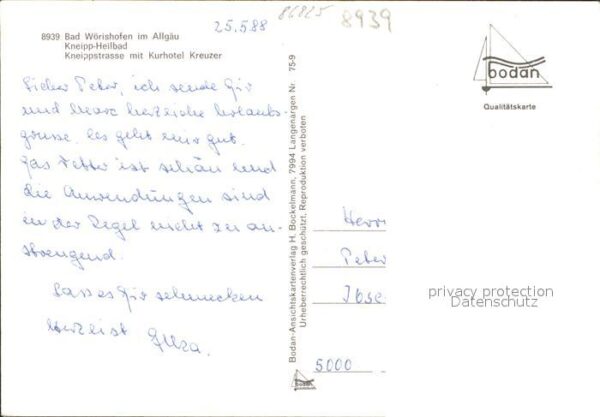 25.5.88
86825
8939
8939 Bad Wörishofen im Allgäu
Kneipp-Heilbad
Kneippstrasse mit Kurhotel Kreuzer
Lieber Peter, ich sende Dir
und Marc herzliche Urlaubs-
grüsse. Es geht mir gut.
Das Wetter ist schön und
die Anwendungen sind
in der Regel nicht zu an-
strengend.
Lass es Dir schmecken
Herzlist
Bodan-Ansichtskartenverlag H. Bockelmann, 7994 Langenargen Nr. 75-9
Urheberrechtlich geschützt, Reproduktion verboten
bodan
Qualitätskarte
Herrn
Peter
5000
privacy protection
Datenschutz
bodan